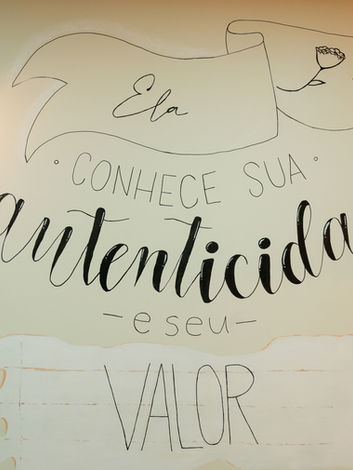 Ela
CONHECE SUA
autenticida
- e seu -
VALOR